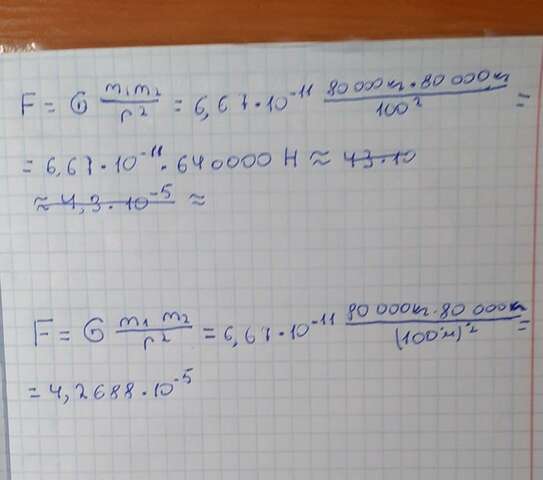 F = G m₁m₂/r² = 6,67·10⁻¹¹ 80 000кг·80 000кг/100² =
= 6,67·10⁻¹¹·640000 Н ≈ 43·10
≈ 4,3·10⁻⁵ ≈
F = G m₁ m₂/r² = 6,67·10⁻¹¹ 80 000кг·80 000кг/(100м)² =
= 4,2688·10⁻⁵